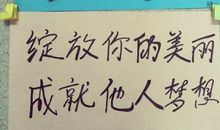 绽放你的美丽
成就他人梦想